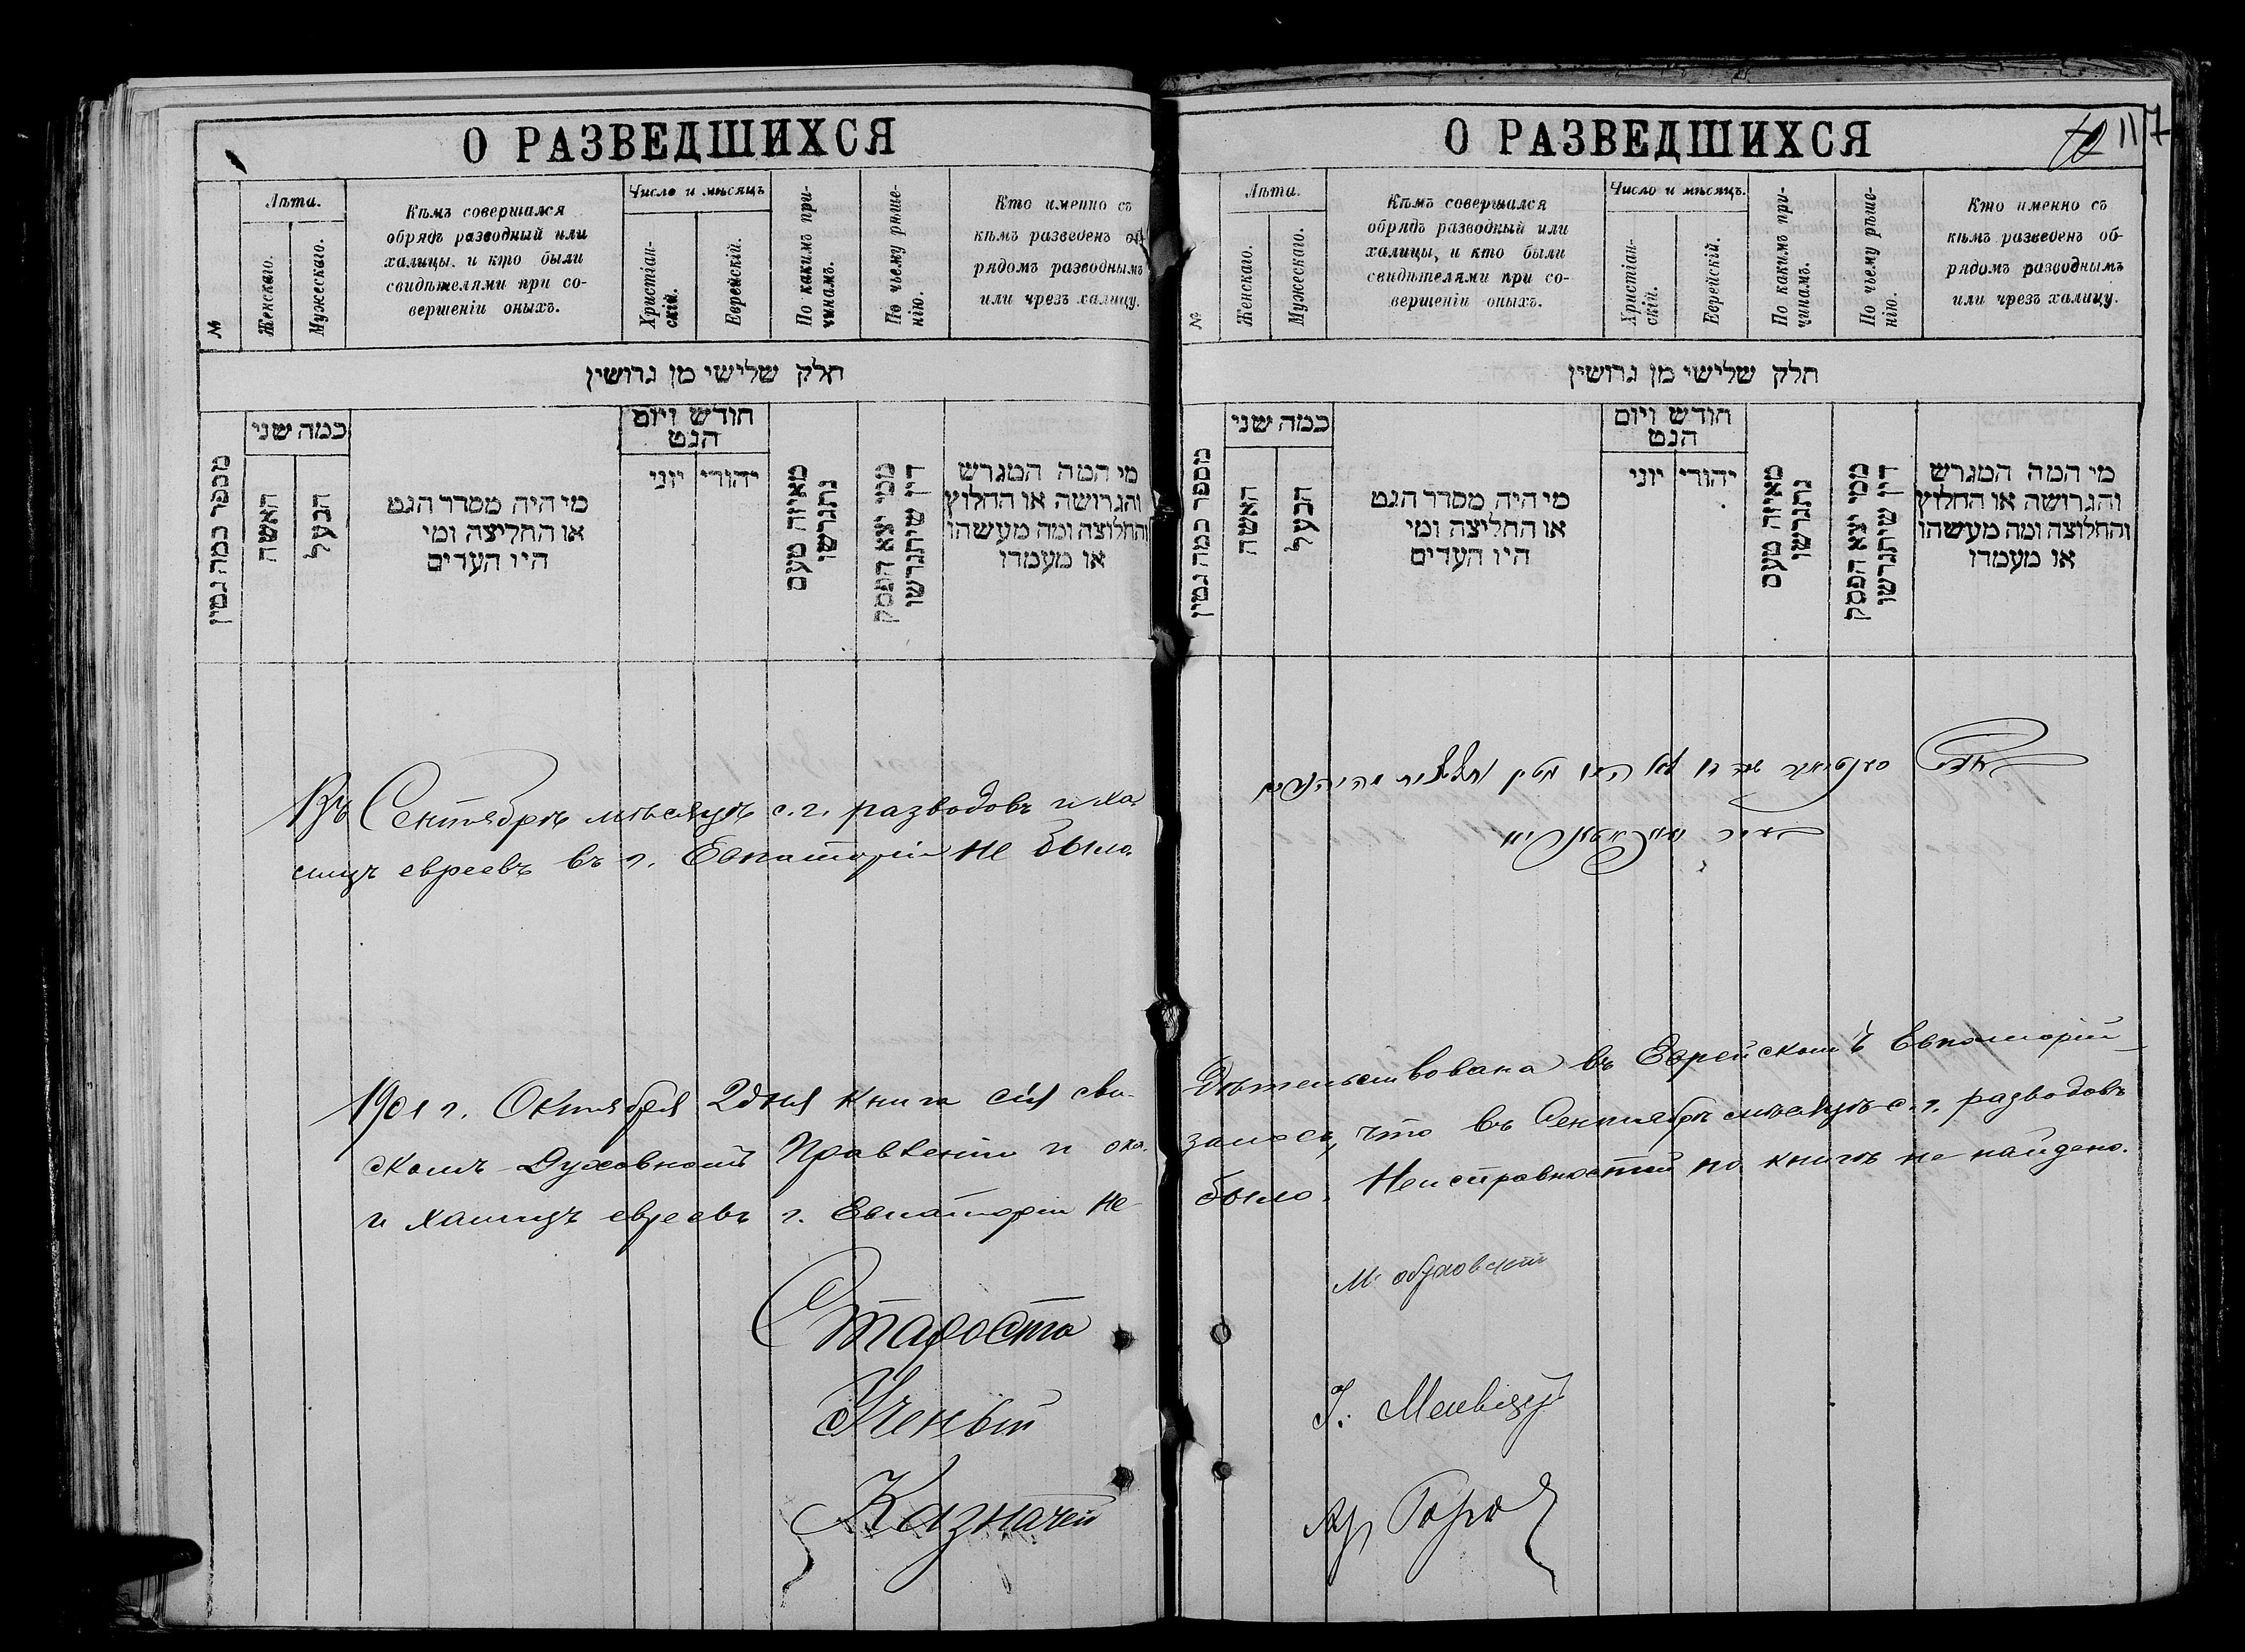 О РАЗВЕДШИХСЯ
№
Лѣта.
Женскаго.
Мужескаго.
Кѣмъ совершался
обрядъ разводный или
халицы, и кто были
свидѣтелями при со-
вершеніи оныхъ.
Число и мѣсяцъ
Христіан-
скій.
Еврейскій.
По какимъ при-
чинамъ.
По чьему рѣше-
нію.
Кто именно съ
кѣмъ разведенъ об
рядомъ разводнымъ
или чрезъ халицу.
חלק שלישי מן גרושין
מספר כמה גטין
כמה שני
האשה
הבעל
מי היה מסדר הגט
או החליצה ומי
היו העדים
חודש ויום
הגט
יוני
יהודי
מאיזה טעם
נתגרשו
ממי יצא הפסק
דין שיתגרשו
מי המה המגרש
והגרושה או החלוץ
והחלוצה ומה מעשהו
או מעמדו
Въ Сентябрѣ мѣсяцѣ с. г. разводовъ и ха-
лицъ евреевъ въ г. Евпаторіи не было.
1901 г. Октября 2 дня книга сія сви-
скомъ Духовномъ Правленіи и ока-
и халицъ евреевъ г. Евпаторіи не
Староста
Ученый
Казначей
О РАЗВЕДШИХСЯ
117
№
Лѣта.
Женскаго.
Мужескаго.
Кѣмъ совершался
обрядъ разводный или
халицы, и кто были
свидѣтелями при со-
вершеніи оныхъ.
Число и мѣсяцъ.
Христіан-
скій.
Еврейскій.
По какимъ при-
чинамъ.
По чьему рѣше-
нію.
Кто именно съ
кѣмъ разведенъ об-
рядомъ разводнымъ
или чрезъ халицу.
חלק שלישי מן גרושין
מספר כמה גטין
כמה שני
האשה
הבעל
מי היה מסדר הגט
או החליצה ומי
היו העדים
חודש ויום
הגט
יוני
יהודי
מאיזה טעם
נתגרשו
ממי יצא הפסק
דין שיתגרשו
מי המה המגרש
והגרושה או החלוץ
והחלוצה ומה מעשהו
או מעמדו
дѣтельствована въ Еврейскомъ Евпаторій-
залось, что въ Сентябрѣ мѣсяцѣ с. г. разводовъ
было. Неисправностей по книгѣ не найдено.
М. Обуховскій